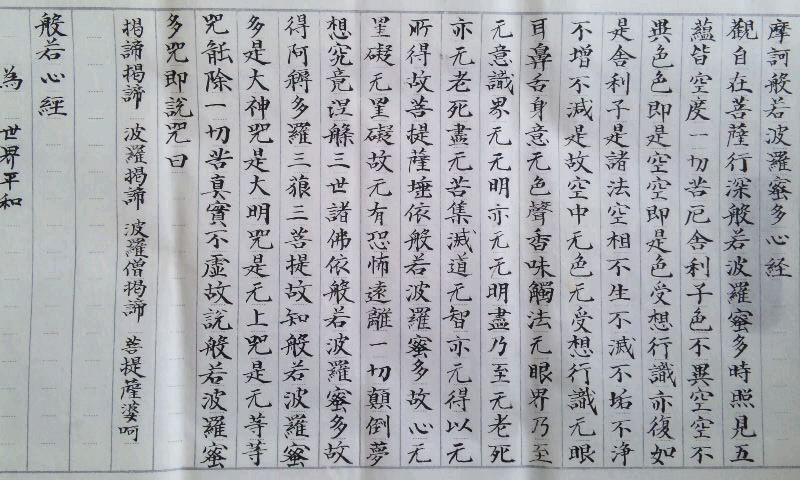 摩訶般若波羅蜜多心経
觀自在菩薩行深般若波羅蜜多時照見五
蘊皆空度一切苦厄舍利子色不異空空不
異色色即是空空即是色受想行識亦復如
是舍利子是諸法空相不生不滅不垢不浄
不增不減是故空中无色无受想行識无眼
耳鼻舌身意无色聲香味觸法无眼界乃至
无意識界无无明亦无无明盡乃至无老死
亦无老死盡无苦集滅道无智亦无得以无
所得故菩提薩埵依般若波羅蜜多故心无
罣礙无罣礙故无有恐怖遠離一切顛倒夢
想究竟涅槃三世諸佛依般若波羅蜜多故
得阿耨多羅三藐三菩提故知般若波羅蜜
多是大神咒是大明咒是无上咒是无等等
咒能除一切苦真實不虛故說般若波羅蜜
多咒即說咒曰
揭諦揭諦 波羅揭諦 波羅僧揭諦 菩提薩婆呵
般若心経
為 世界平和